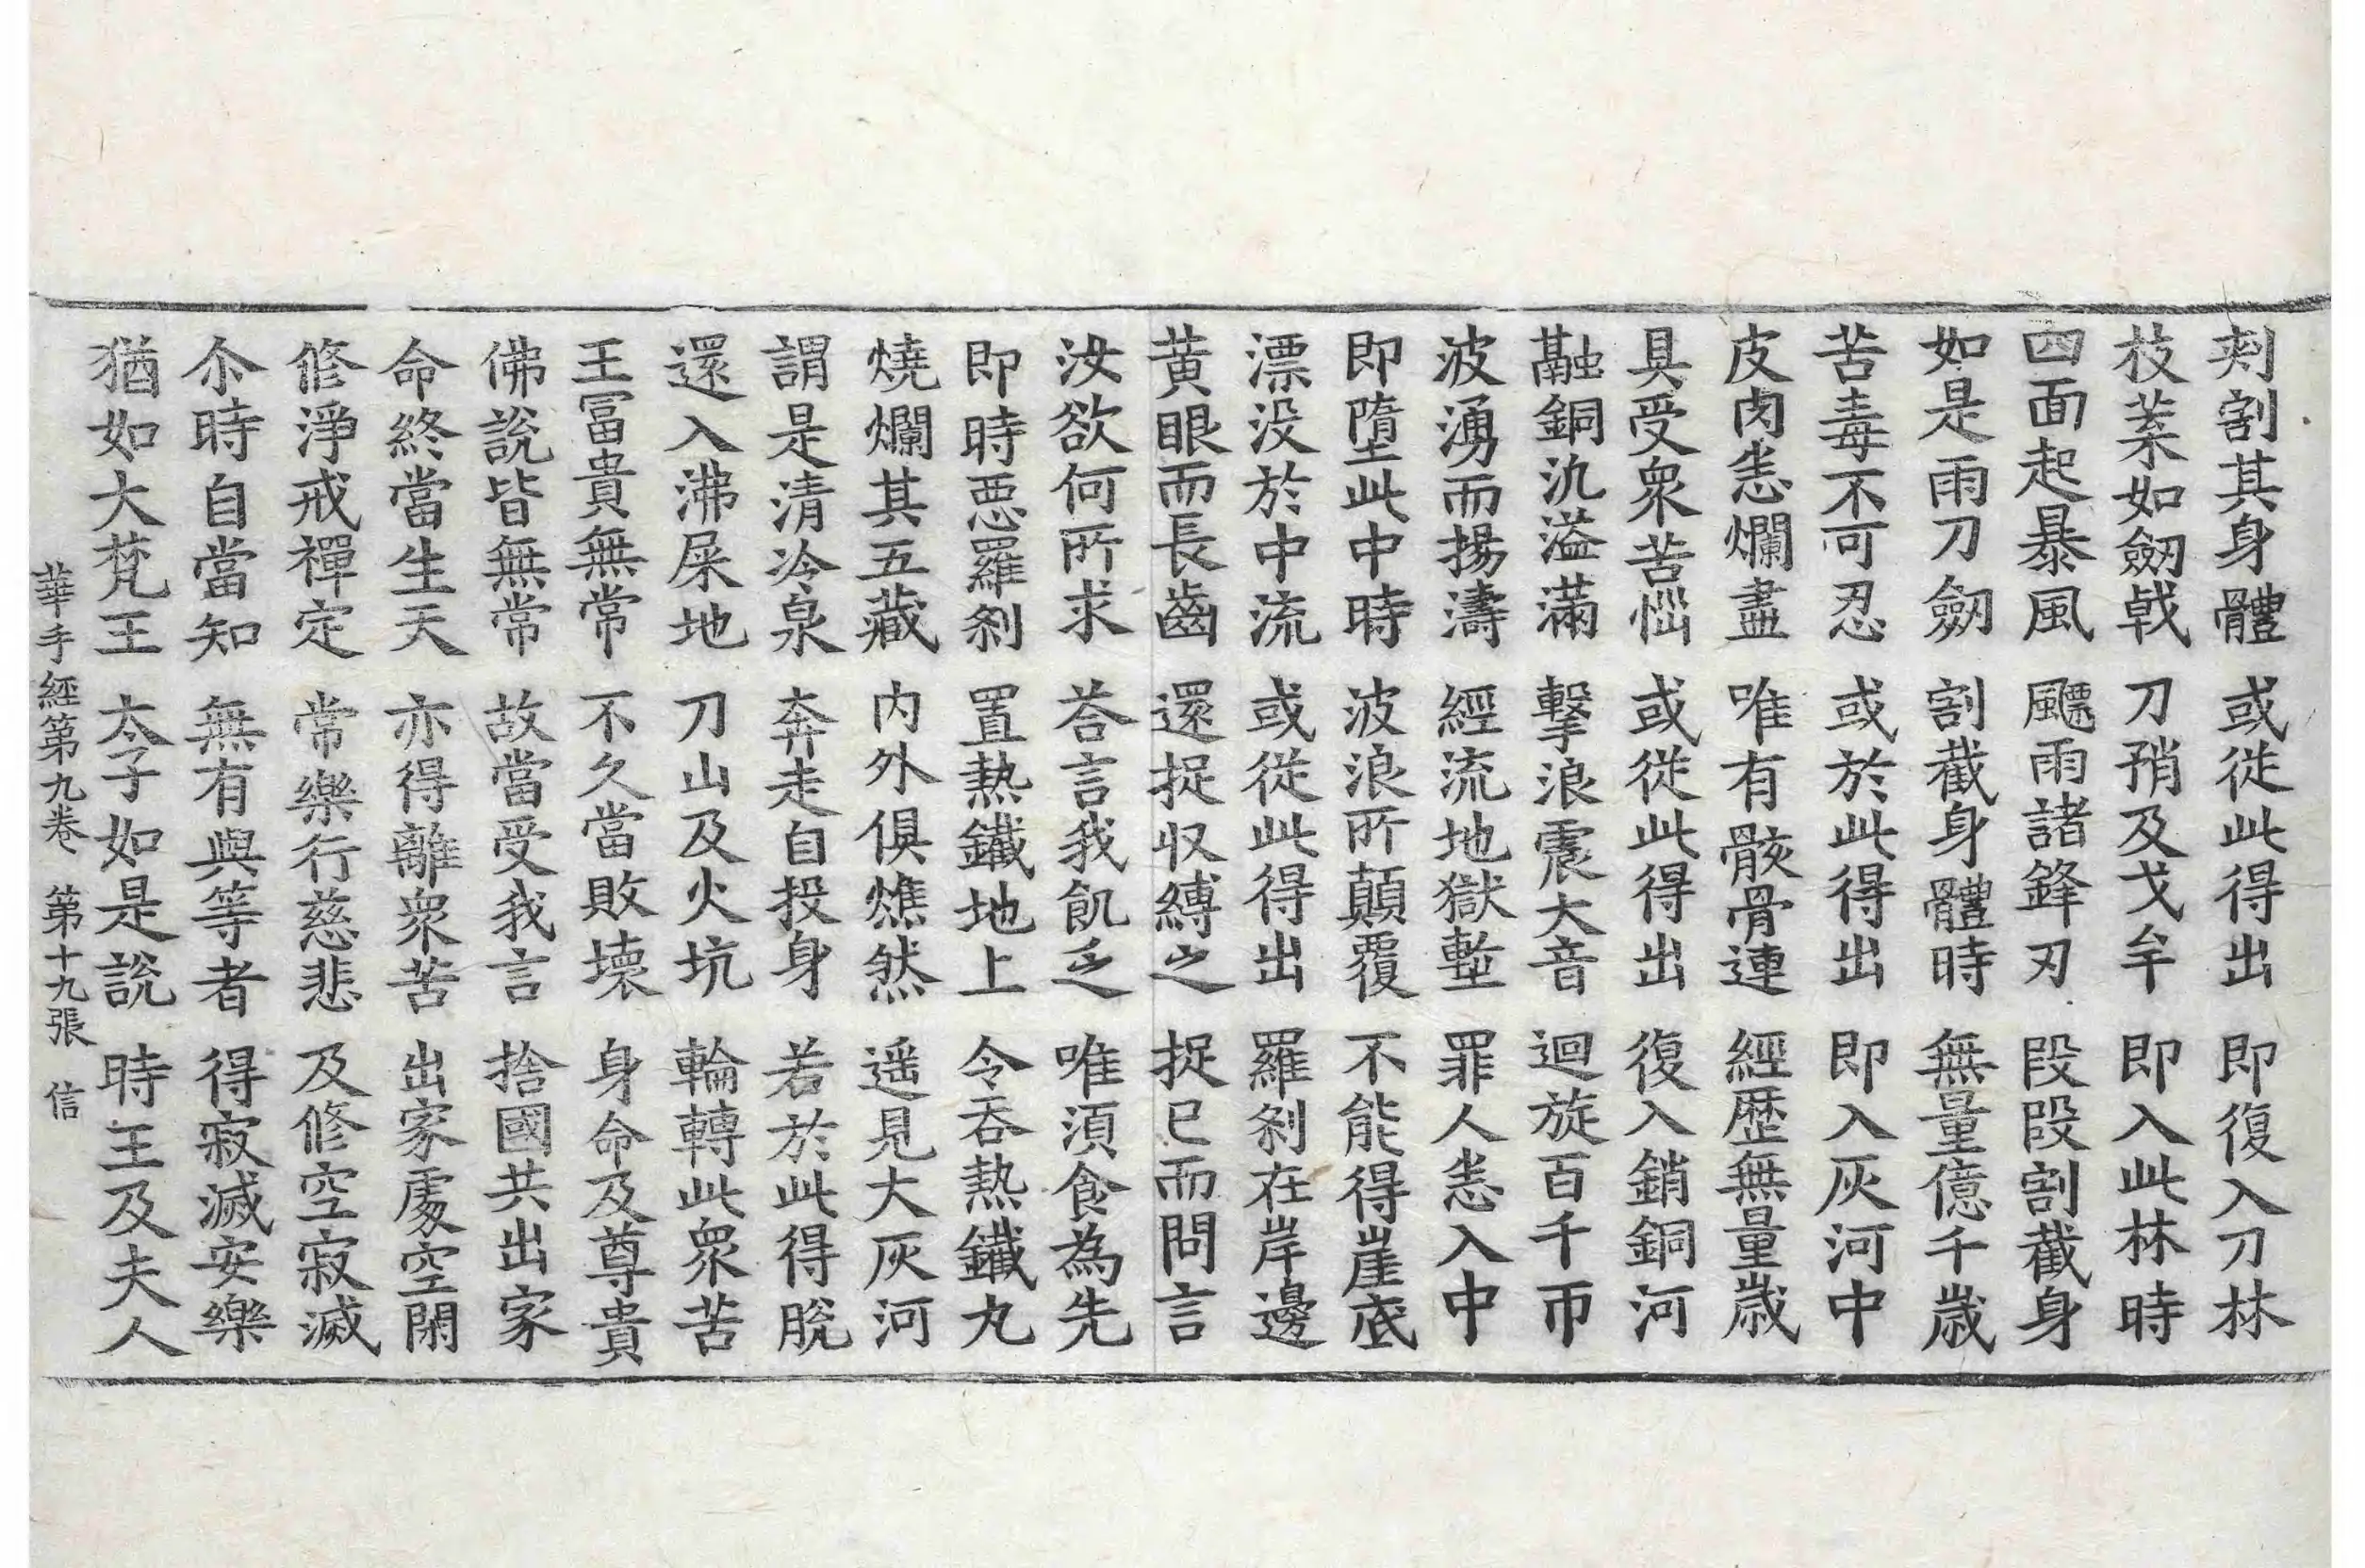 刾割其身體 或従此得出 即復入刀林
枝葉如劒㦸 刀矟及戈牟 即入此林時
四面起暴風 飃雨諸鋒刃 段段割截身
如是雨刀劒 割截身體時 無量億千歳
苦毒不可忍 或於此得出 即入灰河中
皮肉恙爛盡 唯有骸骨連 經歴無量歳
具受衆苦惱 或従此得出 復入銷銅河
融銅氿溢滿 擊浪震大音 迴旋百千帀
波湧而揚濤 經流地獄壍 罪人恙入中
即墮此中時 波浪所顛覆 不能得崖底
漂没於中流 或従此得出 羅剎在岸邊
黄眼而長齒 還捉収縛之 捉已而問言
汝欲何所求 荅言我飢乏 唯湏食為先
即時惡羅剎 置熱鐵地上 令吞熱鐵丸
燒爛其五藏 内外俱燋然 遥見大灰河
謂是清冷泉 奔走自投身 若於此得脫
還入沸屎地 刀山及火坑 輪轉此衆苦
王冨貴無常 不久當敗壞 身命及尊貴
佛說皆無常 故當受我言 捨國共出家
命終當生天 亦得離衆苦 出家處空閑
修淨戒禪定 常樂行慈悲 及修空寂滅
尒時自當知 無有與等者 得寂滅安樂
猶如大梵王 太子如是說 時王及夫人
華手經第九卷 第十九張 信